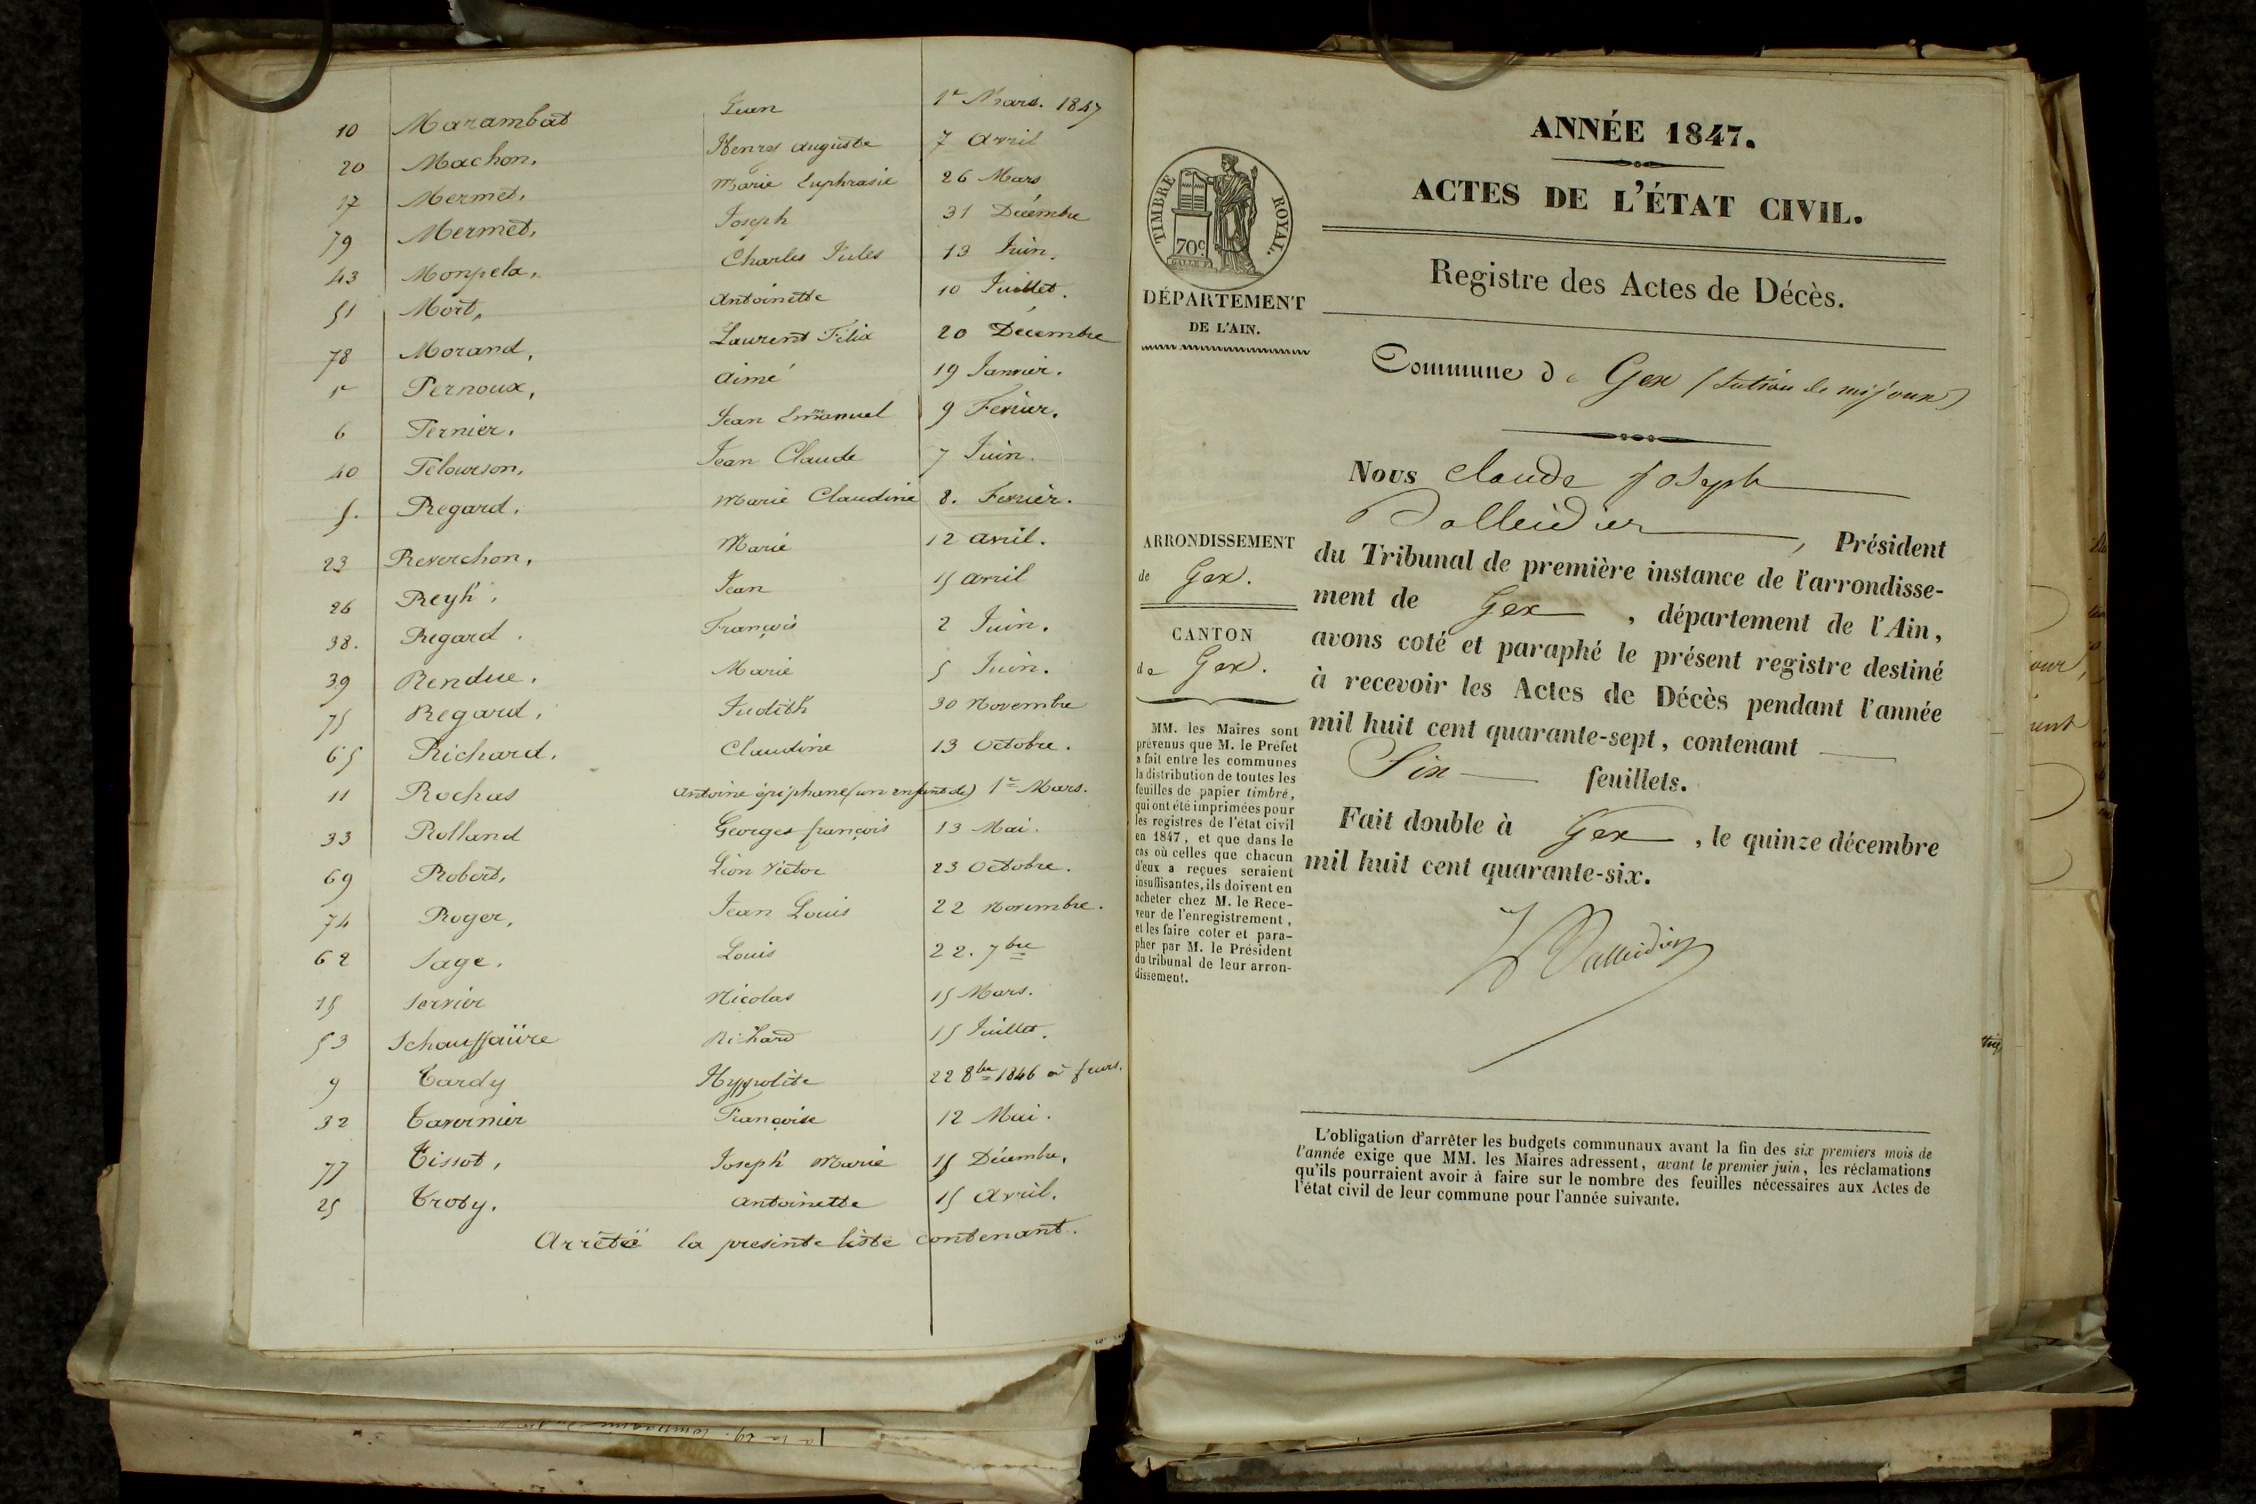 10 Marambat Jean 1r Mars. 1847
20 Machon. Henry auguste 7 avril
17 Mermet. Marie Euphrasie 26 Mars
79 Mermet. Joseph 31 Décembre
43 Monpela. Charles Jules 13 Juin.
51 Mort, antoinette 10 Juillet.
78 Morand, Laurent Félix 20 Décembre
Pernoux, aimé 19 Janvier.
6 Pernier. Jean Emmanuel 9 Fevrier.
40 Pelourson, Jean Claude 7 Juin.
5. Regard. Marie Claudine 8. Fevrier.
23 Reverchon, Marie 12 avril.
26 Reyh. Jean 15 avril
38. Regard. François 2 Juin.
39 Rendue. Marie 5 Juin.
75 Regard. Judith 30 Novembre
65 Richard. Claudine 13 Octobre.
11 Rochas antoine épiphane (un enfant de) 1r Mars.
33 Rolland Georges françois 13 Mai.
69 Robert, Léon Victor 23 Octobre.
74 Roger, Jean Louis 22 Novembre.
62 Sage. Louis 22. 7bre
15 Servier Nicolas 15 Mars.
53 Schauffaüre Richard 15 Juillet.
9 Tardy Hyppolite 22 8bre 1846 à feurs.
32 Tavernier Françoise 12 Mai.
77 Tissot, Joseph Marie 15 Décembre,
25 Troty. antoinette 15 avril.
Arrêté la presente liste contenant.
ANNÉE 1847.
ACTES DE L'ÉTAT CIVIL.
TIMBRE ROYAL.
70c.
Registre des Actes de Décès.
DÉPARTEMENT
DE L'AIN.
Commune de Gex (Section de mijoux)
Nous Claude joseph
Balleidier, Président
du Tribunal de première instance de l'arrondisse-
ment de Gex, département de l'Ain,
avons coté et paraphé le présent registre destiné
à recevoir les Actes de Décès pendant l'année
mil huit cent quarante-sept, contenant
Six feuillets.
Fait double à Gex, le quinze décembre
mil huit cent quarante-six.
Balleidier
ARRONDISSEMENT
de Gex.
CANTON
de Gex.
MM. les Maires sont
prévenus que M. le Préfet
a fait entre les communes
la distribution de toutes les
feuilles de papier timbré,
qui ont été imprimées pour
les registres de l'état civil
en 1847, et que dans le
cas où celles que chacun
d'eux a reçues seraient
insuffisantes, ils doivent en
acheter chez M. le Rece-
veur de l'enregistrement,
et les faire coter et para-
pher par M. le Président
du tribunal de leur arron-
dissement.
L'obligation d'arrêter les budgets communaux avant la fin des six premiers mois de
l'année exige que MM. les Maires adressent, avant le premier juin, les réclamations
qu'ils pourraient avoir à faire sur le nombre des feuilles nécessaires aux Actes de
l'état civil de leur commune pour l'année suivante.